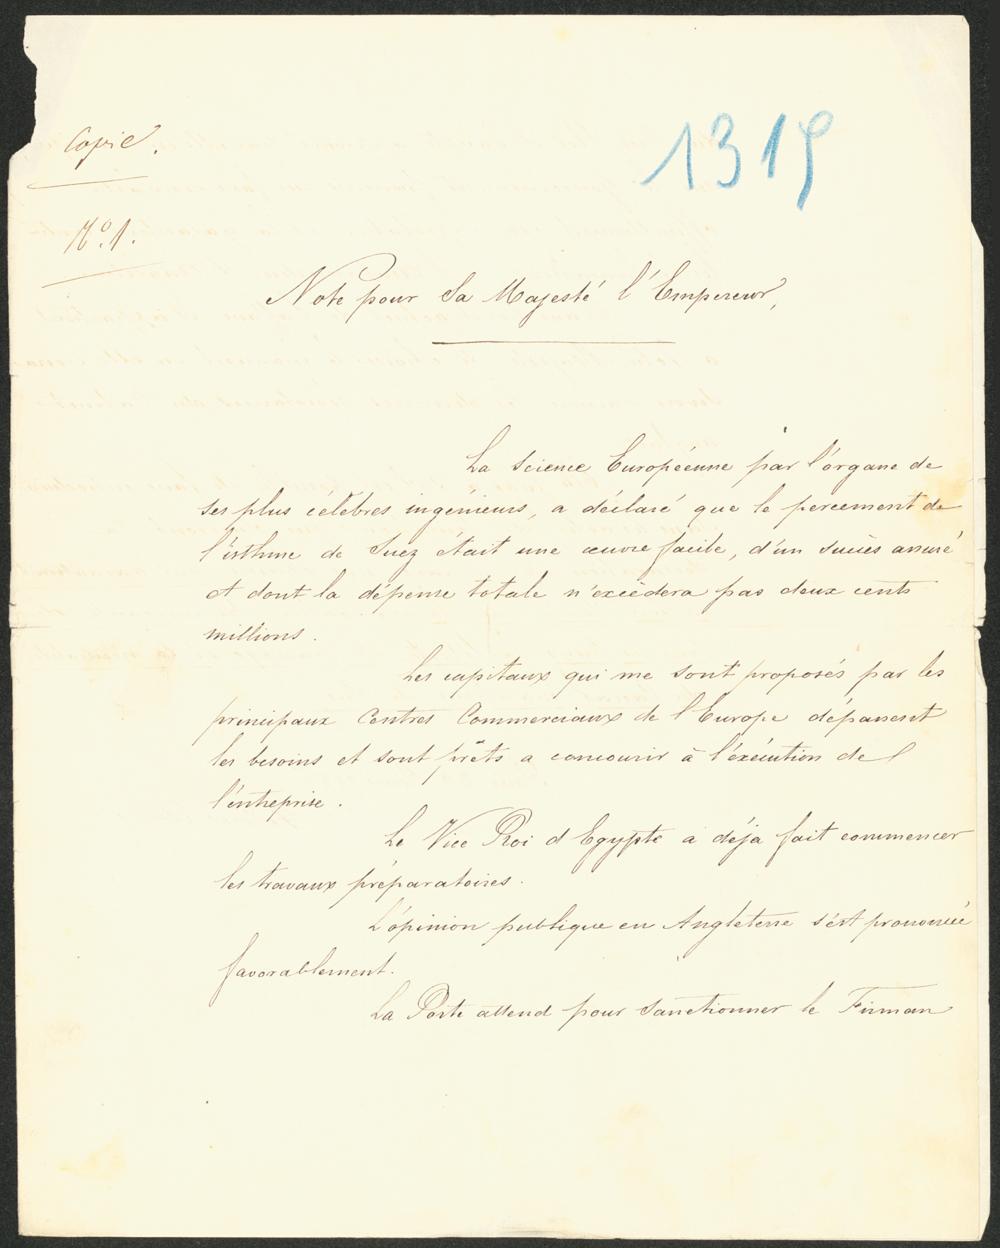 Copie.
1319
Nº. 1.
Note pour Sa Majesté l'Empereur,
La science Européenne par l'órgane de
ses plus célèbres ingénieurs, a déclaré que le percement de
l'isthme de Suez était une œuvre facile, d'un succès assuré
et dont la dépense totale n'excèdera pas deux cents
millions.
Les capitaux qui me sont proposés par les
principaux Centres Commerciaux de l'Europe dépassent
les besoins et sont prêts a concourir à l'éxécution de
l'éntreprise.
Le Vice Roi d'Egypte a déja fait commencer
les travaux préparatoires.
L'ópinion publique en Angleterre s'ést prononcée
favorablement.
La Porte attend pour sanctionner le Firman